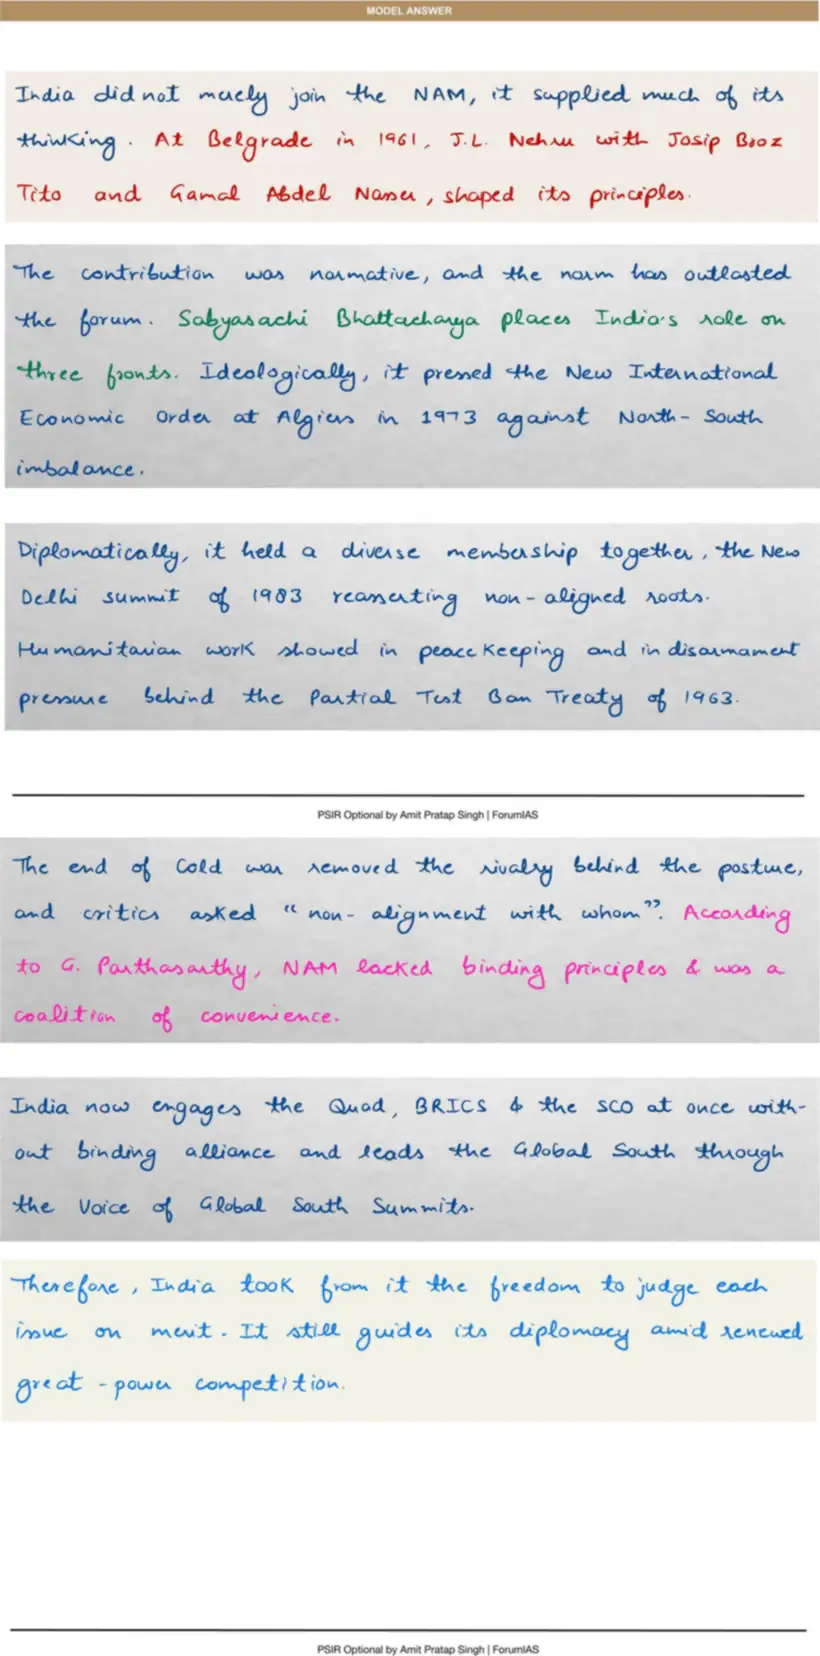 MODEL ANSWER
India did not merely join the NAM, it supplied much of its
thinking. At Belgrade in 1961, J.L. Nehru with Josip Broz
Tito and Gamal Abdel Nasser, shaped its principles.
The contribution was normative, and the norm has outlasted
the forum. Sabyasachi Bhattacharya places India's role on
three fronts. Ideologically, it pressed the New International
Economic Order at Algiers in 1973 against North-South
imbalance.
Diplomatically, it held a diverse membership together, the New
Delhi summit of 1983 reasserting non-aligned roots.
Humanitarian work showed in peace keeping and in disarmament
pressure behind the Partial Test Ban Treaty of 1963.
PSIR Optional by Amit Pratap Singh | ForumIAS
The end of Cold war removed the rivalry behind the posture,
and critics asked "non-alignment with whom". According
to G. Parthasarthy, NAM lacked binding principles & was a
coalition of convenience.
India now engages the Quad, BRICS & the SCO at once with-
out binding alliance and leads the Global South through
the Voice of Global South Summits.
Therefore, India took from it the freedom to judge each
issue on merit. It still guides its diplomacy amid renewed
great-power competition.
PSIR Optional by Amit Pratap Singh | ForumIAS